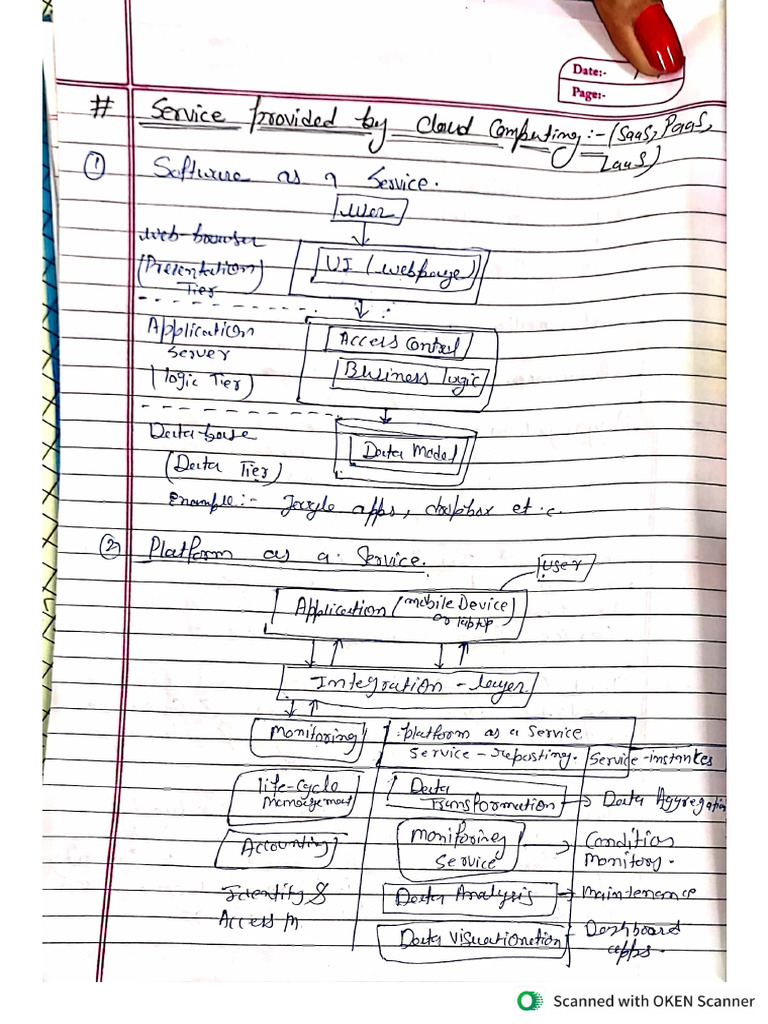 Date:-
Page:-
# Service Provided by Cloud Computing :- (SaaS, PaaS,
IaaS)
① Software as a Service.
User
Web-bowser
(Presentation)
Tier
UI (webpage)
Application
Server
(logic Tier)
Access Control
Business logic
Data base
(Data Tier)
Data Model
Example:- Google apps, dropbox etc.
② Platform as a Service.
User
Application (mobile Device)
or laptop
Integration - layer
Monitoring
:platform as a Service
Service - repositing.
Service-instances
life-Cycle
Management
Data
Transformation
Data Aggregation
Accounting
Monitoring
Service
Condition
Monitory.
Identity &
Access m.
Data Analysis
Maintenence
Data Visuationation
Dashboard
apps.
Scanned with OKEN Scanner